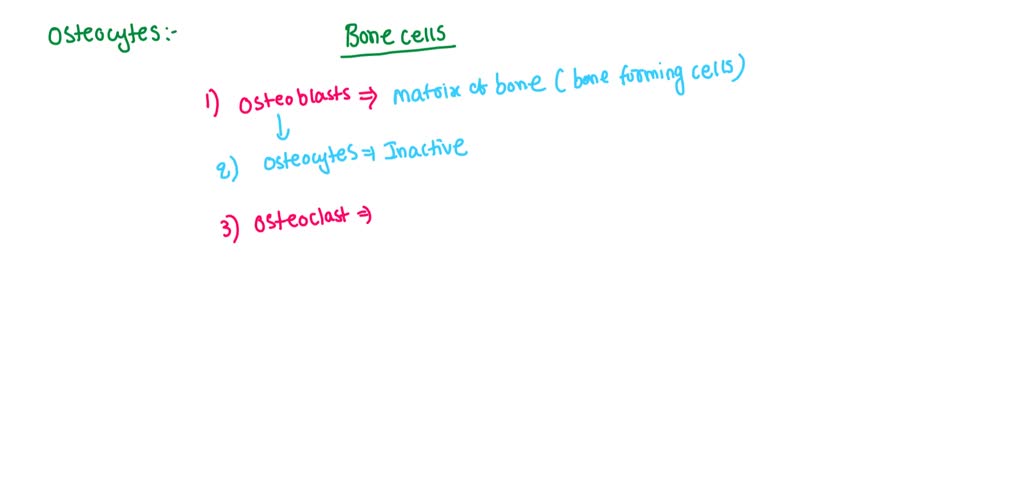 Osteocytes:-
Bone cells
1) Osteoblasts ⇒ matrix of bone (bone forming cells)
↓
2) Osteocytes ⇒ Inactive
3) Osteoclast ⇒